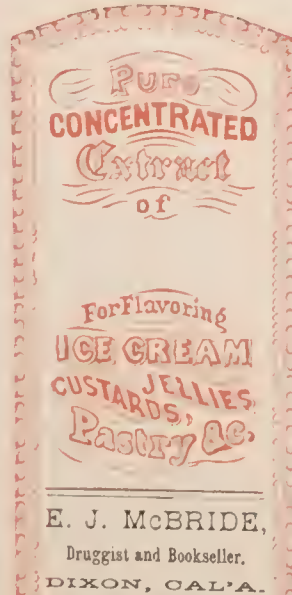 Pure
CONCENTRATED
Extract
of
For Flavoring
ICE CREAM
JELLIES,
CUSTARDS,
Pastry &c.
E. J. McBRIDE,
Druggist and Bookseller.
DIXON, CAL'A.